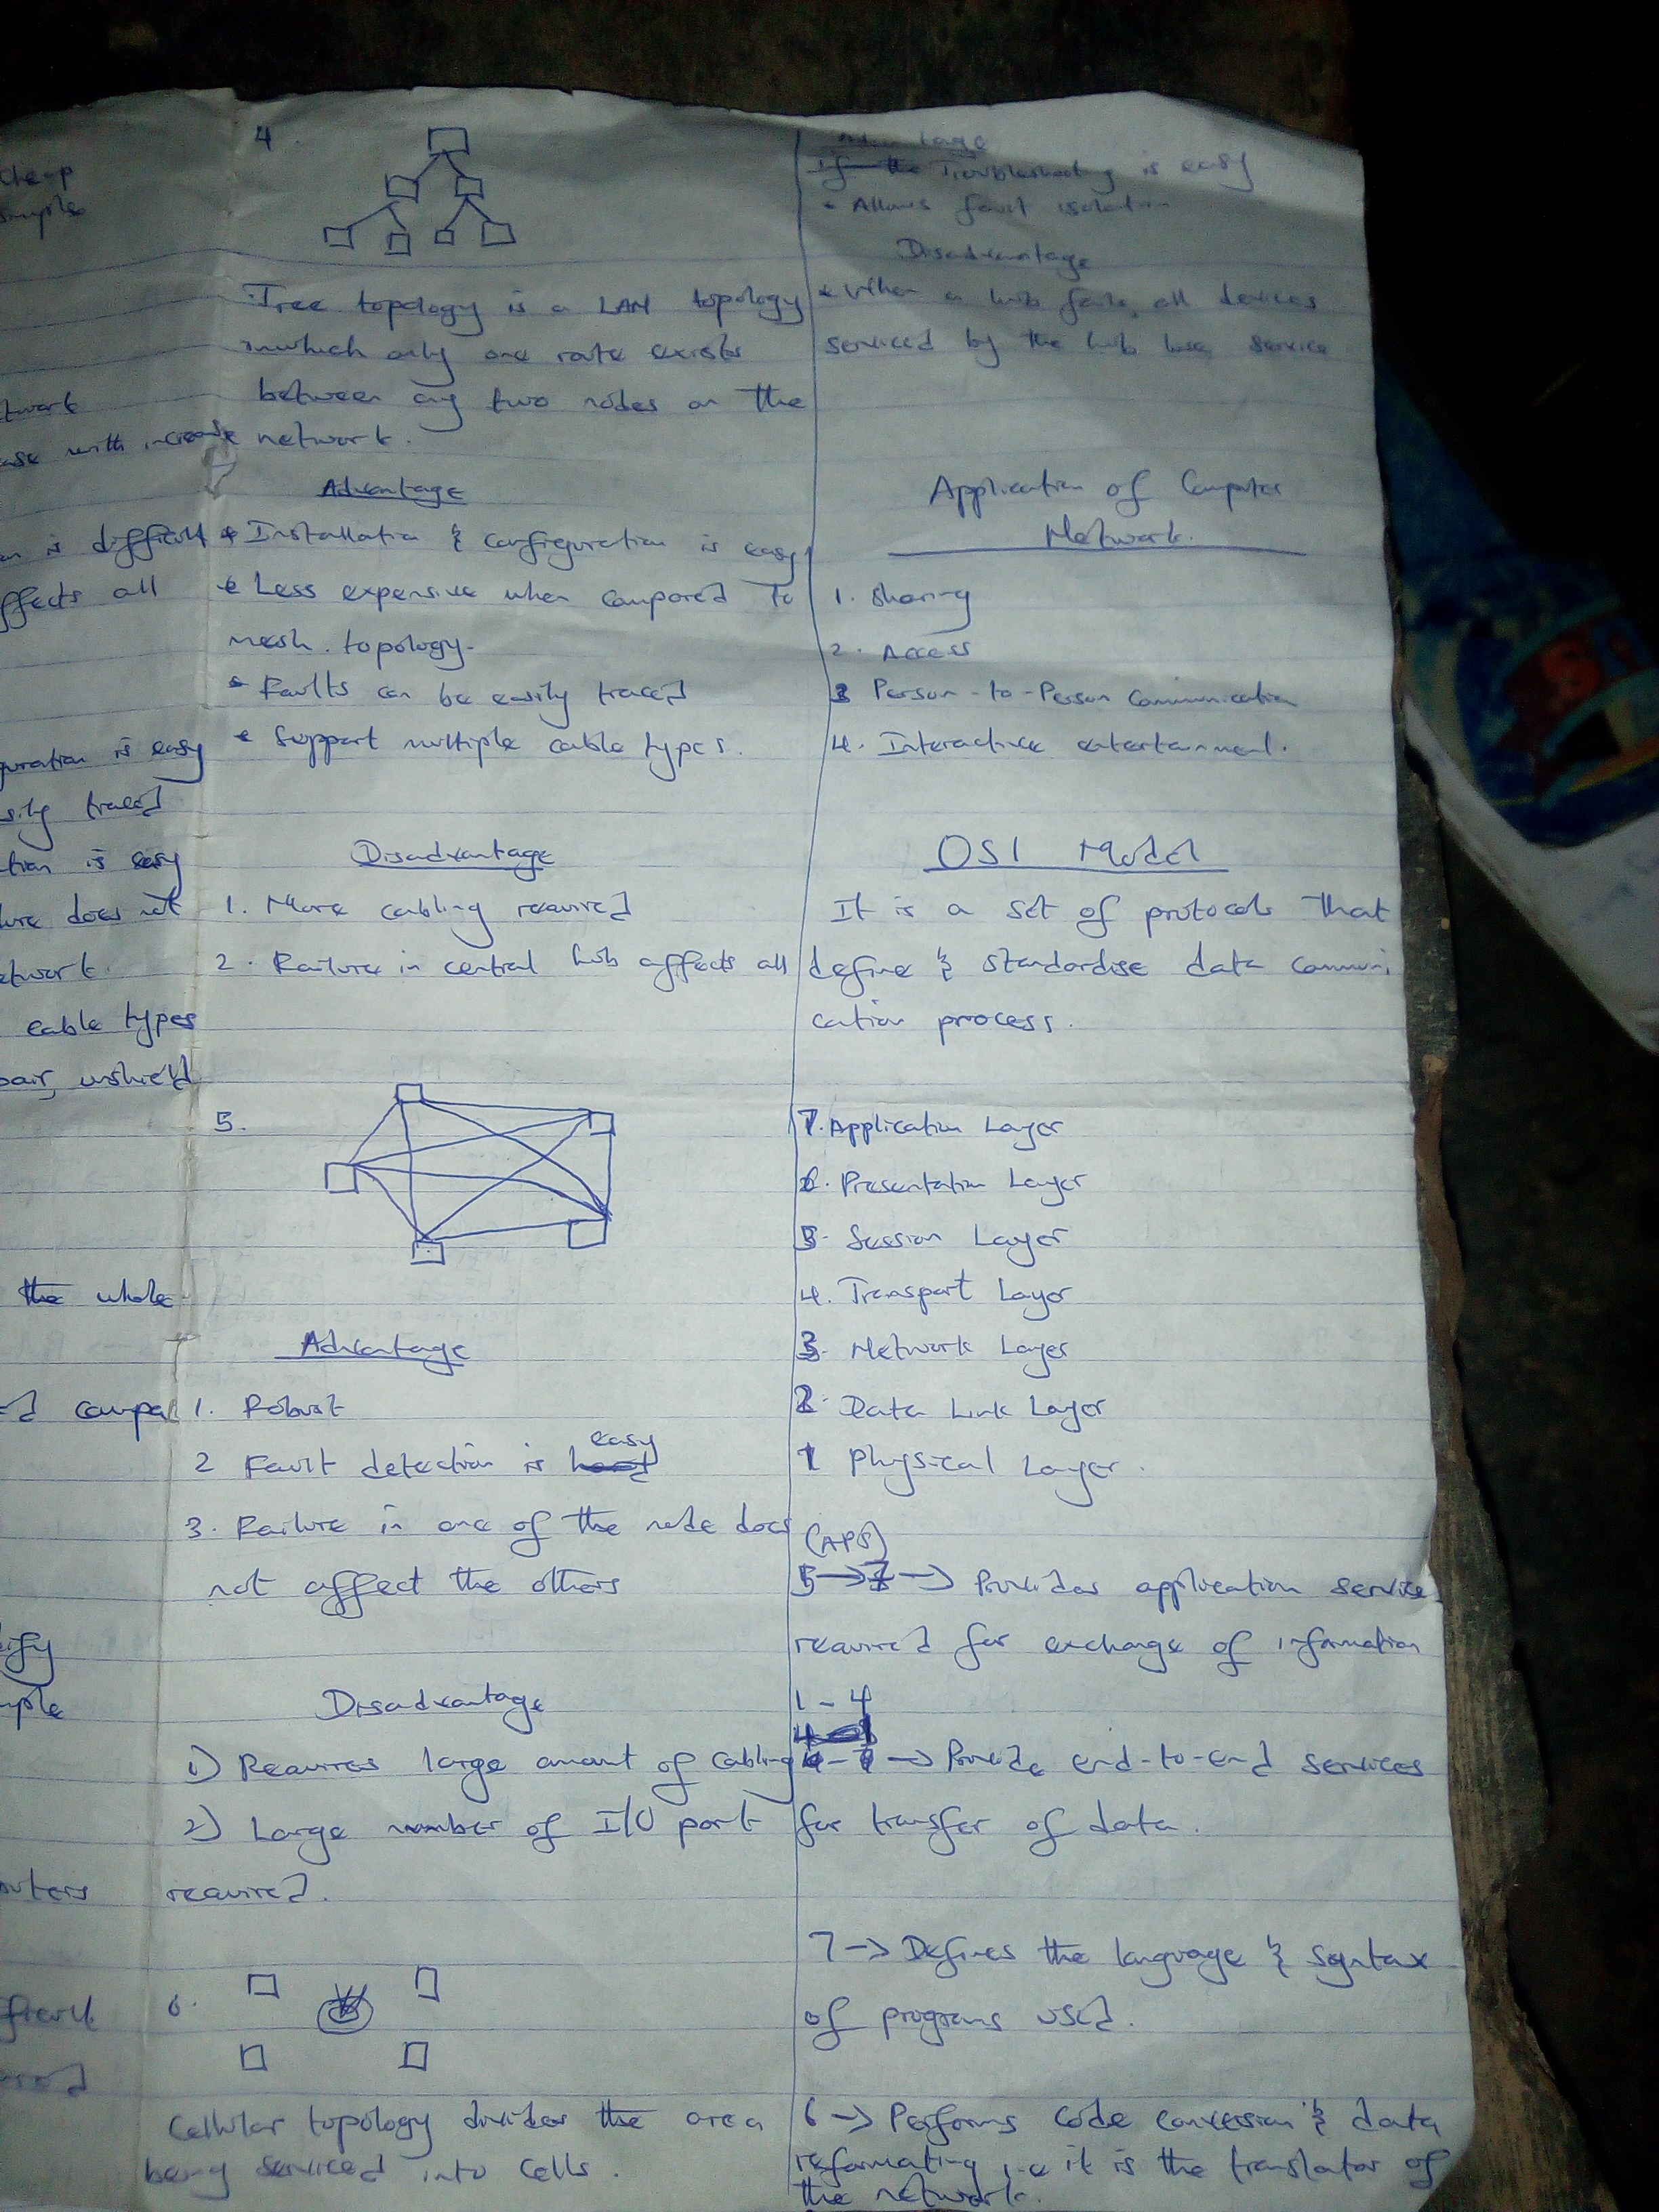 cheap
simple
network
ease with increase
is difficult
affects all
guration is easy
sily traced
tion is easy
lure does not
etwork.
cable types
pair, unshield
the whole
compa
ify
mple
outers
4
Tree topology is a LAN topology
inwhich only one route exists
between any two nodes on the
network.
Advantage
* Installation & configuration is easy
* Less expensive when compared to
mesh. topology.
* Faults can be easily traced
* Support multiple cable types.
Disadvantage
1. More cabling required
2. Failure in central hub affects all
5.
Advantage
1. Robust
easy
2 Fault detection is hard
3. Failure in one of the node does
not affect the others
Disadvantage
1) Requires large amount of cabling
2) Large number of I/O port
required.
6.
Cellular topology divides the area
being serviced into cells.
If the Troubleshooting is easy
* Allows fault isolation
Disadvantage
* When a hub fails, all devices
serviced by the hub lose service
Application of Computer
Network.
1. Sharing
2. Access
3 Person-to-Person Communication
4. Interactive entertainment.
OSI Model
It is a set of protocols that
define & standardise data communi
cation process.
7. Application Layer
6. Presentation Layer
5. Session Layer
4. Transport Layer
3. Network Layer
2. Data Link Layer
1 Physical Layer.
(APS)
5 → 7 → Provides application service
required for exchange of information
1 - 4
→ Provide end-to-end services
for transfer of data.
7 → Defines the language & syntax
of programs used.
6 → Performs code conversion & data
reformating i.e it is the translator of
the network.